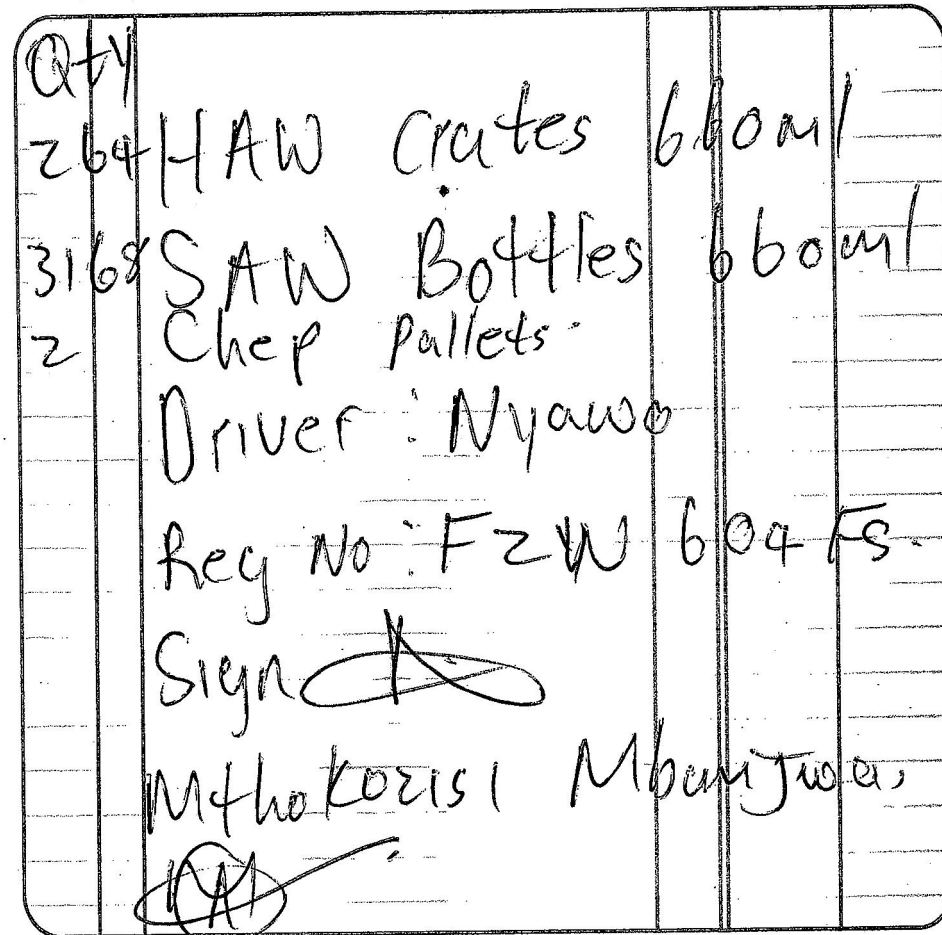 Qty
264 HAW Crates 660ml
3168 SAW Bottles 660ml
2 Chep Pallets
Driver : Nyawo
Reg No : FZW 604 FS.
Sign
Mthokozisi Mbanjwa.